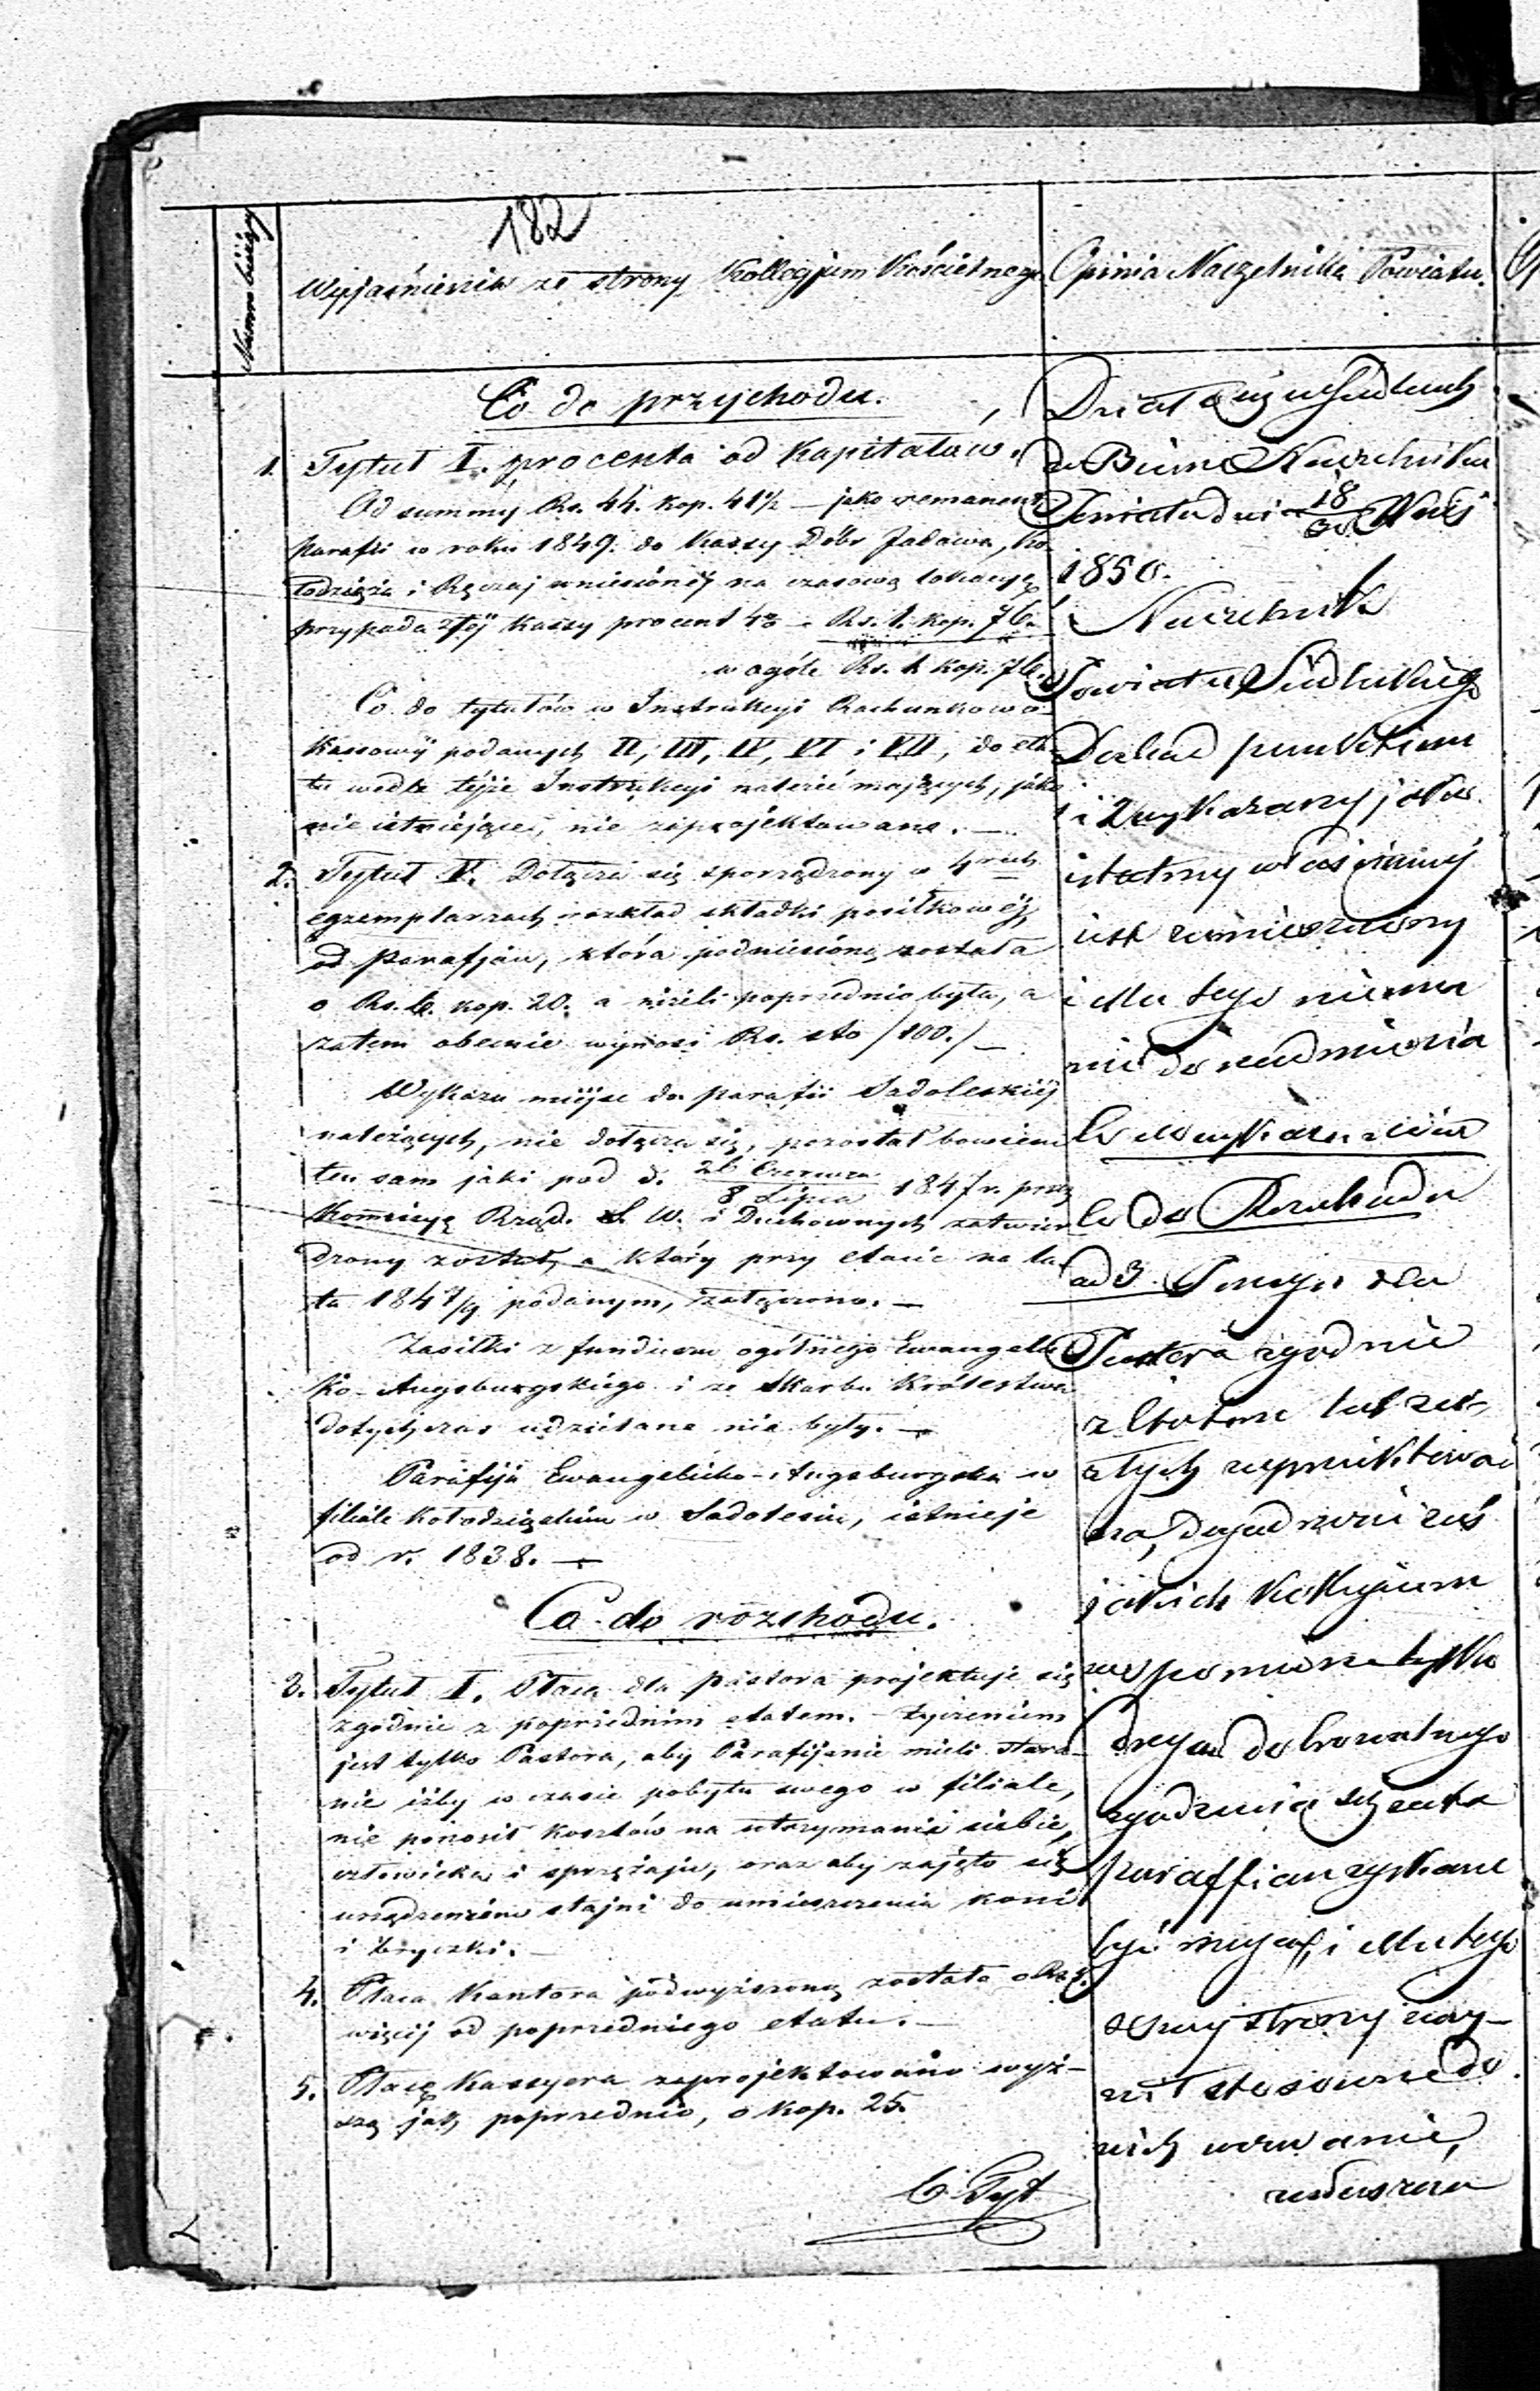 182
Numer bieżący
Wyjaśnienia ze strony Kollegjum Kościelnego
Opinia Naczelnika Powiatu.
Co do przychodu.
1. Tytuł I. procenta od Kapitałów.
Od summy Rs. 44. kop. 41½ — jako remanent
parafii w roku 1849. do Kassy Dóbr Jabłonna, Ko-
łodziąża i Ręczaj wniesionej na czasową lokacyę
przypada z tej kassy procent 4% - Rs. 1. kop. 76.
w ogóle Rs. 1 kop. 76.
Co do tytułów w Instrukcyi Rachunkowo-
Kassowej podanych II, III, IV, VI i VII, do eta-
tu wedle tejże Instrukcyi należeć mających, jako
nie istniejące, nie zaprojektowane. —
2. Tytuł V. Dołącza się sporządzony w 4rech
egzemplarzach rozkład składki posiłkowej,
od Parafjan, która podniesioną została
o Rs. 6. kop. 20. a niżeli poprzednio była, a
zatem obecnie wynosi Rs. sto /100./ —
Wykazu miejsc do parafii Sadoleskiej
należących, nie dołącza się, pozostał bowiem
ten sam jaki pod d. 26 Czerwca / 8 Lipca 1847 r. przez
Kommissyę Rząd. S. W. i Duchownych zatwier-
dzony został, a który przy etacie na la-
ta 1847/9 podanym, załączono. —
Zasiłki z funduszu ogólnego Ewangelic-
ko-Augsburgskiego i ze Skarbu Królestwa
dotychczas udzielane nie były. —
Parafija Ewangelicko-Augsburgska w
filiale Kołodziąskim w Sadolesiu, istnieje
od r. 1838. —
Co do rozchodu.
3. Tytuł I. Płaca dla Pastora projektuje się
zgodnie z poprzednim etatem. - życzeniem
jest tylko Pastora, aby Parafijanie mieli stara-
nie iżby w czasie pobytu swego w filiale,
nie ponosił kosztów na utrzymanie siebie,
człowieka i sprzężaju, oraz aby zajęto się
urządzeniem stajni do umieszczenia koni
i bryczki. —
4. Płaca Kantora podwyższoną została o Rs.
więcej od poprzedniego etatu. —
5. Płacę Kassyera zaprojektowano wyż-
szą jak poprzednio, o kop. 25.
w Biurze Naczelnika
Powiatu dnia 18/30 Maj
1850.
Naczelnik
Powiatu Siedleckiego
Dochód punktem
1 i 2 wykazany jako
istotny właściwiej
jest zamieszczony
i dla tego niema
nic do nadmienia
Co do Rozchodu
ad 3. Pensya dla
Pastora zgodnie
z Etatem lat ze-
szłych zaprojektowa
na, dogodności zaś
jakich Kollegium
wspomina tylko
drogą dobrowolnego
zgodzenia się
paraffian zyskane
być mogą, i dla tego
z swej strony
stosowne do
nich wezwanie,